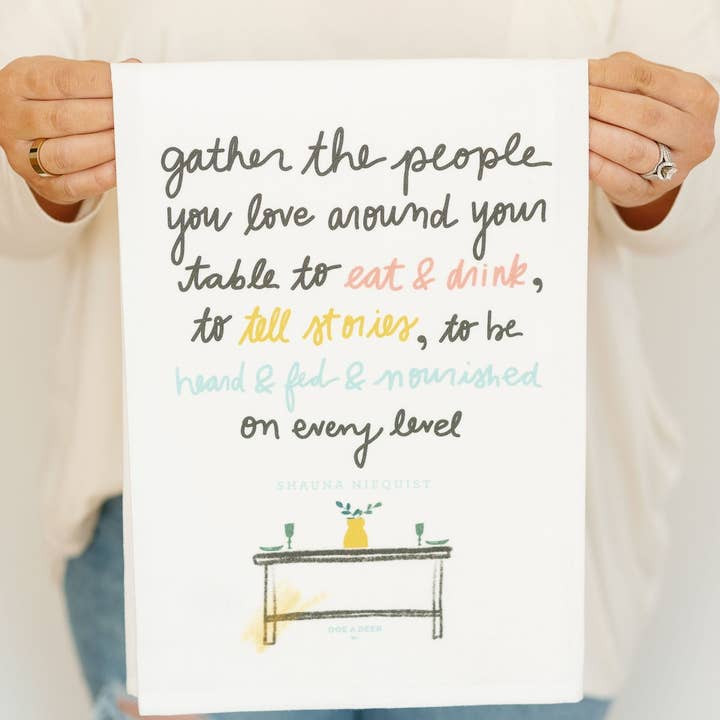 gather the people
you love around your
table to eat & drink,
to tell stories, to be
heard & fed & nourished
on every level
SHAUNA NIEQUIST
DOE A DEER